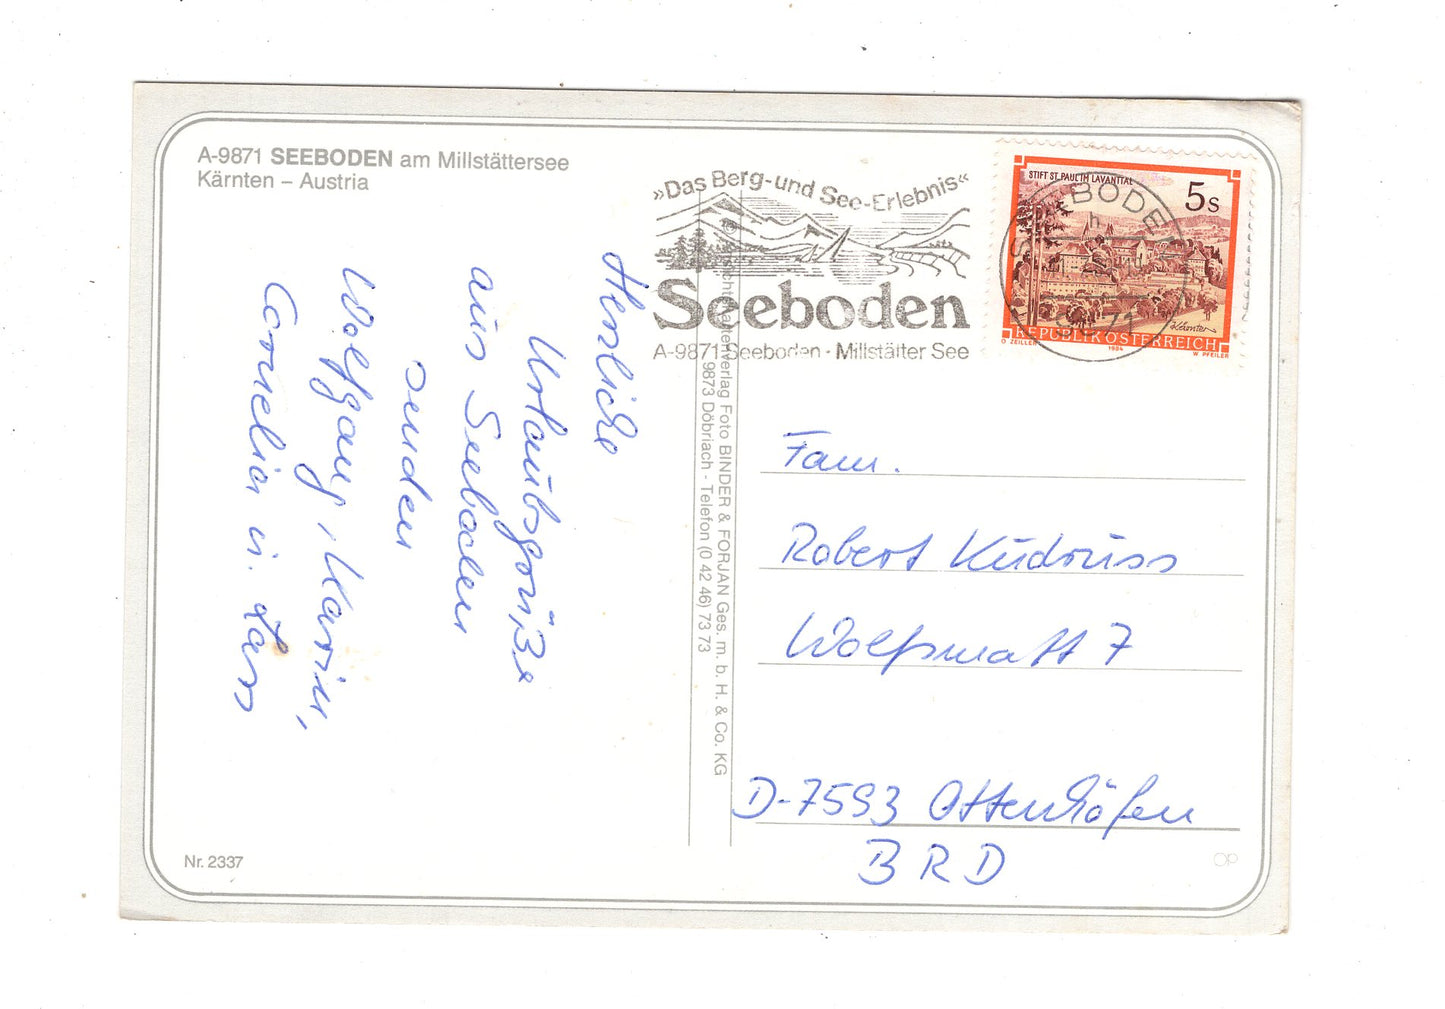 A-9871 SEEBODEN am Millstättersee
Kärnten – Austria
»Das Berg- und See-Erlebnis«
Seeboden
A-9871 Seeboden · Millstätter See
STIFT ST. PAUL IM LAVANTTAL
5s
REPUBLIK ÖSTERREICH
O ZEILLER
1985
W. PFEILER
SEEBODEN
9871
Herzliche
Urlaubsgrüße
aus Seeboden
senden
Wolfgang, Karin,
Cornelia u. Lars
Ansichtskartenverlag Foto BINDER & FORJAN Ges. m. b. H. & Co. KG
9873 Döbriach - Telefon (0 42 46) 73 73
Fam.
Robert Kudruss
Wolfsmatt 7
D-7593 Ottenhöfen
BRD
Nr. 2337
OP